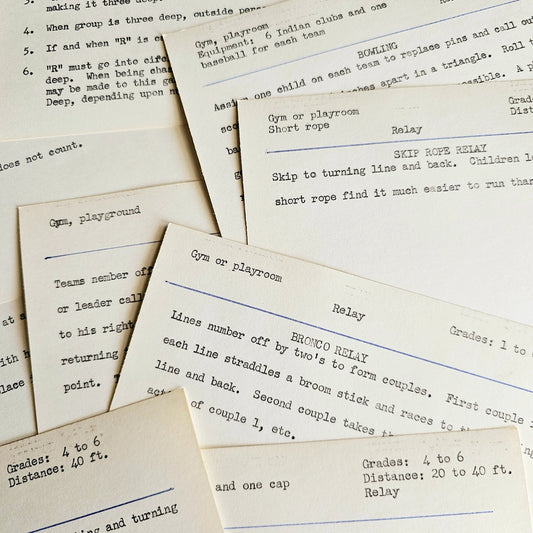 making it three deep, outside
4. When group is three deep, outside
5. If and when "R" is
6. "R" must go into
deep. When being
may be made to this
Deep, depending upon
does not count.
Gym, playroom
Equipment: 6 Indian clubs and one
baseball for each team
BOWLING
one child on each team to replace pins and call
apart in a triangle. Roll
Gym or playroom
Short rope
Relay
SKIP ROPE RELAY
Skip to turning line and back. Children
short rope find it much easier to run than
Gym, playground
Teams number off
or leader
to his right
returning
point.
Gym or playroom
Relay
Grades: 1 to
BRONCO RELAY
Lines number off by two's to form couples. First couple
each line straddles a broom stick and races to
line and back. Second couple takes
of couple 1, etc.
at
Grades: 4 to 6
Distance: 40 ft.
and turning
and one cap
Grades: 4 to 6
Distance: 20 to 40 ft.
Relay